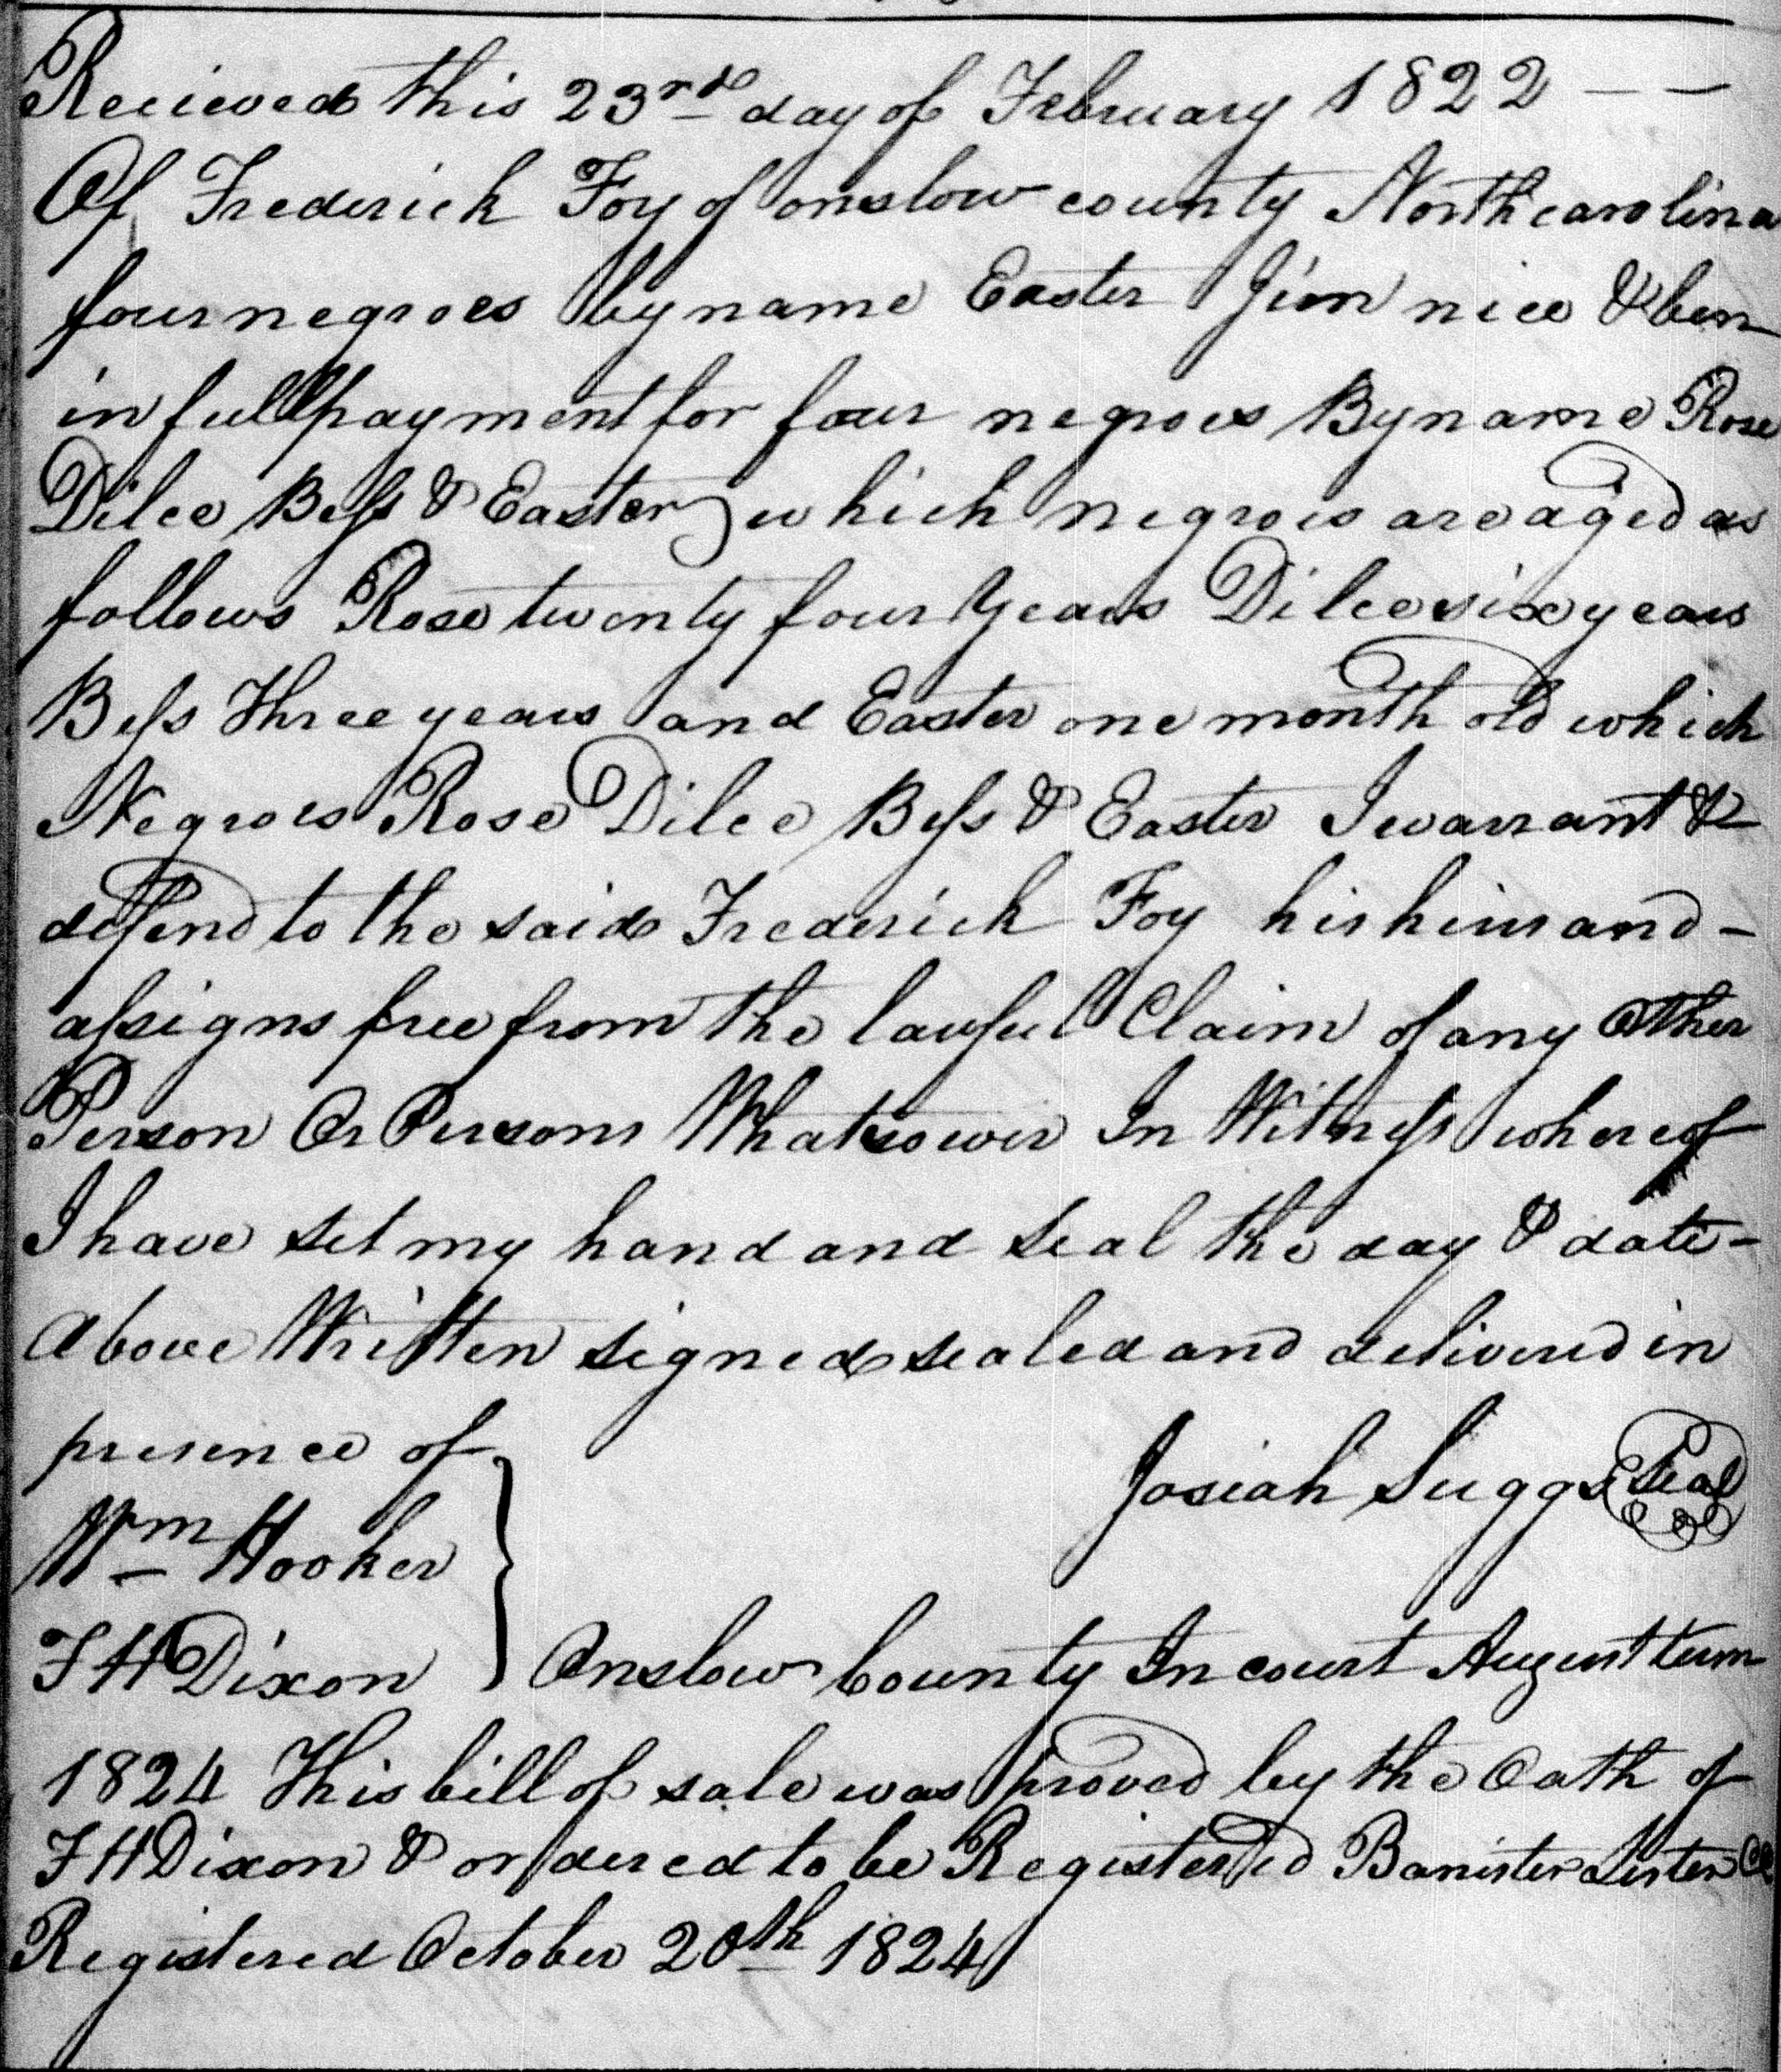 Recieved this 23rd day of February 1822 — —
Of Frederick Foy of onslow county North carolina
four negroes by name Easter Jim nice & ben
in full payment for four negroes By name Rose
Dilce Bess & Easter which negroes are aged as
follows Rose twenty four years Dilce six years
Bess Three years and Easter one month old which
Negroes Rose Dilce Bess & Easter I warrant &
defend to the said Frederick Foy his heirs and -
assigns free from the lawful Claim of any Other
Person Or Persons Whatsoever In Witness whereof
I have set my hand and seal the day & date -
above Written signed sealed and delivered in
presence of
Josiah Suggs Seal
Wm Hooker
F H Dixon } Onslow County In court August term
1824 This bill of sale was proved by the Oath of
F H Dixon & ordered to be Registered Banister Lister
Registered October 20th 1824